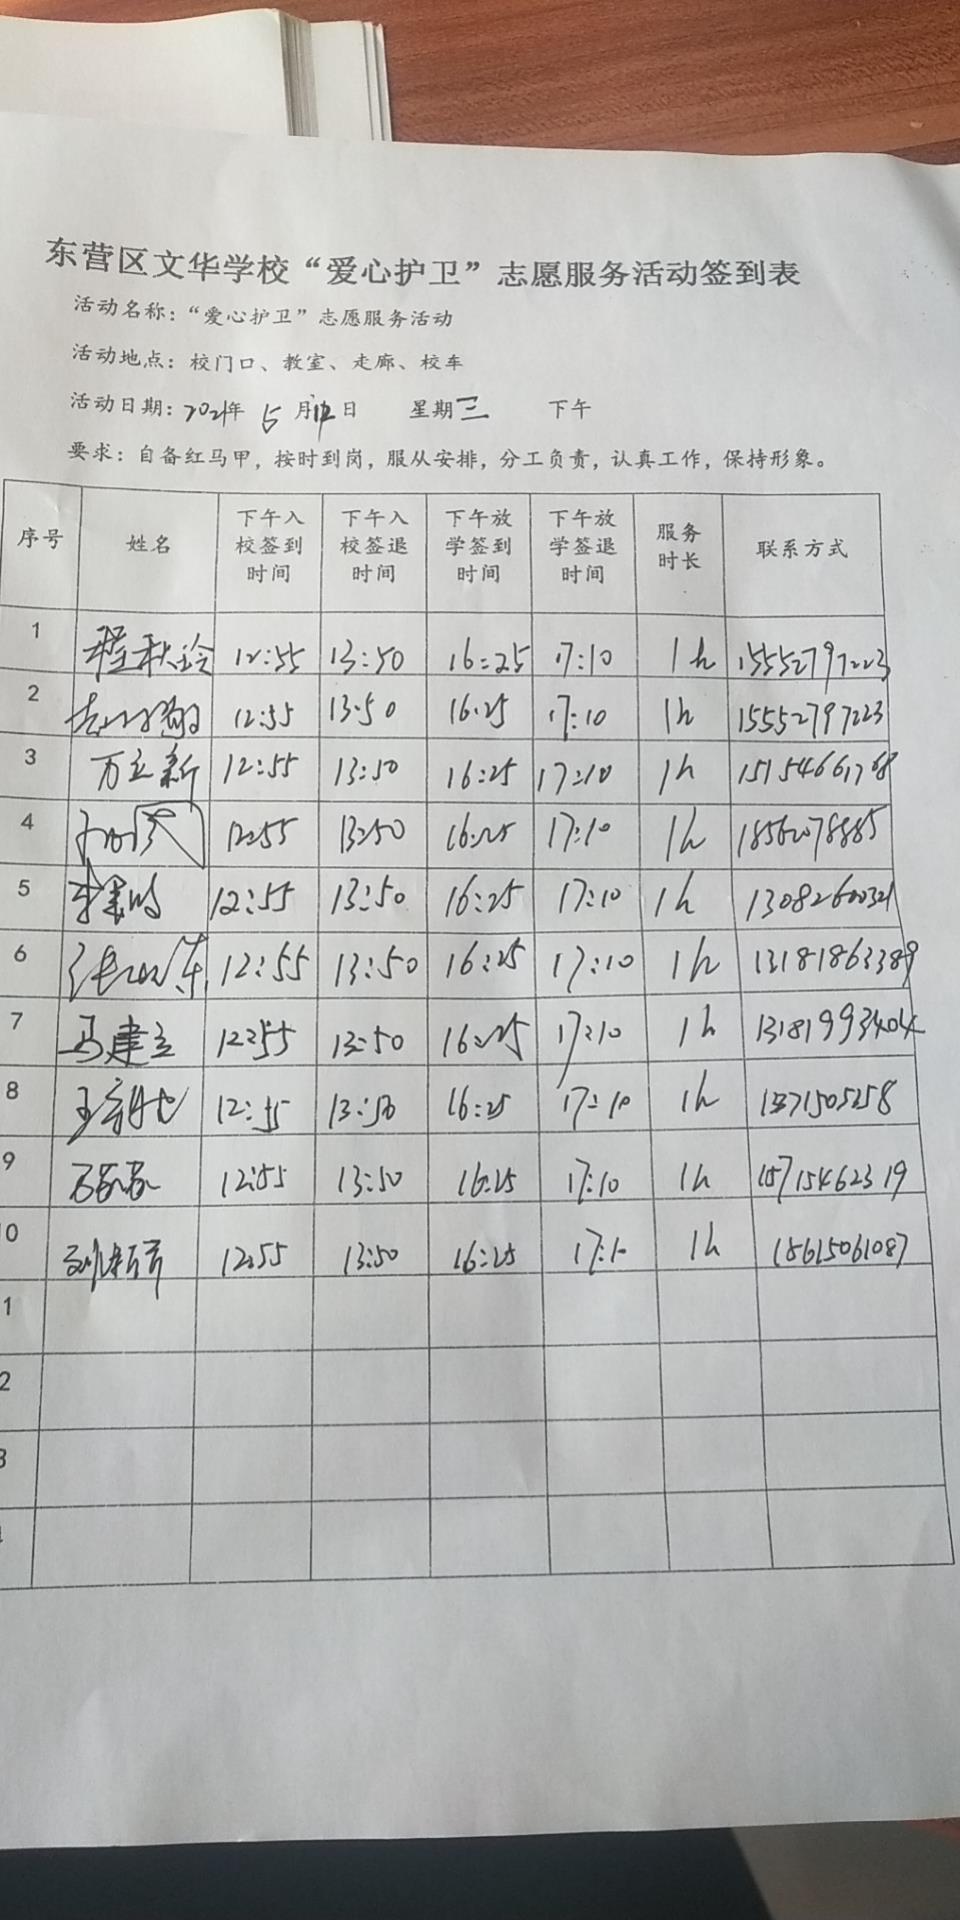 东营区文华学校“爱心护卫”志愿服务活动签到表
活动名称：“爱心护卫”志愿服务活动
活动地点：校门口、教室、走廊、校车
活动日期：2021年 5月12日 星期三 下午
要求：自备红马甲，按时到岗，服从安排，分工负责，认真工作，保持形象。
序号 姓名 下午入校签到时间 下午入校签退时间 下午放学签到时间 下午放学签退时间 服务时长 联系方式
1 程秋玲 12:55 13:50 16:25 17:10 1h 15552797223
2 12:55 13:50 16:25 17:10 1h 15552797223
3 万立新 12:55 13:50 16:25 17:10 1h 15154661768
4 12:55 13:50 16:25 17:10 1h 18562078885
5 12:55 13:50 16:25 17:10 1h 13082600321
6 12:55 13:50 16:25 17:10 1h 13181863389
7 马建立 12:55 13:50 16:25 17:10 1h 13181993404
8 12:55 13:50 16:25 17:10 1h
9 12:55 13:50 16:25 17:10 1h 15715462319
0 12:55 13:50 16:25 17:10 1h 18615061087
1
2
3